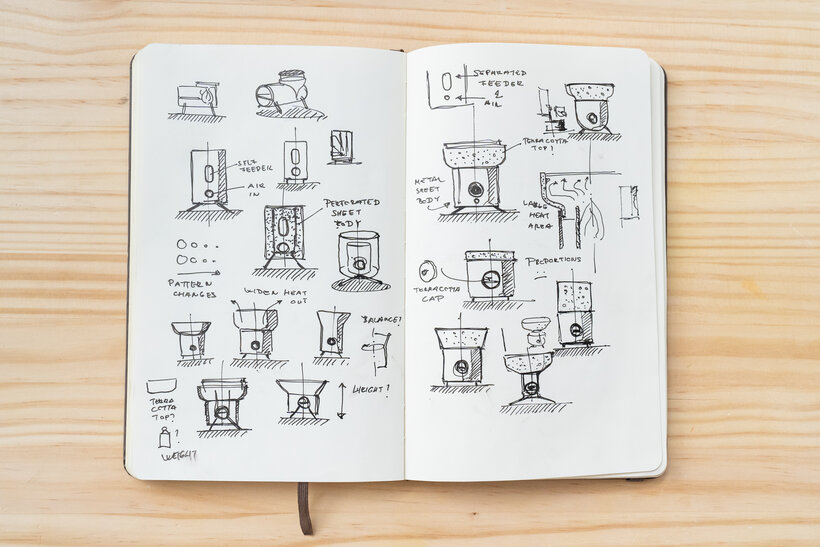 SELF
FEEDER
AIR
IN
PERFORATED
SHEET
BODY
PATTERN
CHANGES
WIDEN HEAT
OUT
BALANCE?
HEIGHT?
TERRA
COTTA
TOP?
?
WEIGHT
SEPARATED
FEEDER
&
AIR
TERRACOTTA
TOP!
METAL
SHEET
BODY
LARGE
HEAT
AREA
PROPORTIONS
TERRACOTTA
CAP